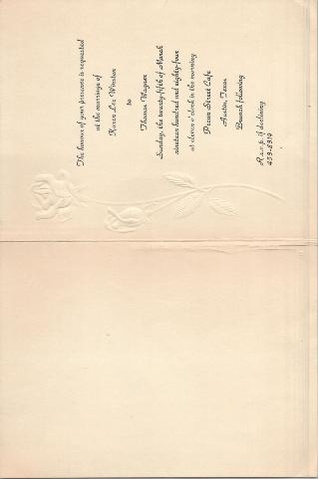 The honour of your presence is requested
at the marriage of
Karen Lee Winston
to
Thomas Wagner
Sunday, the twenty-fifth of March
nineteen hundred and eighty-four
at eleven o'clock in the morning
Pecan Street Cafe
Austin, Texas
Brunch following
R.s.v.p. if declining